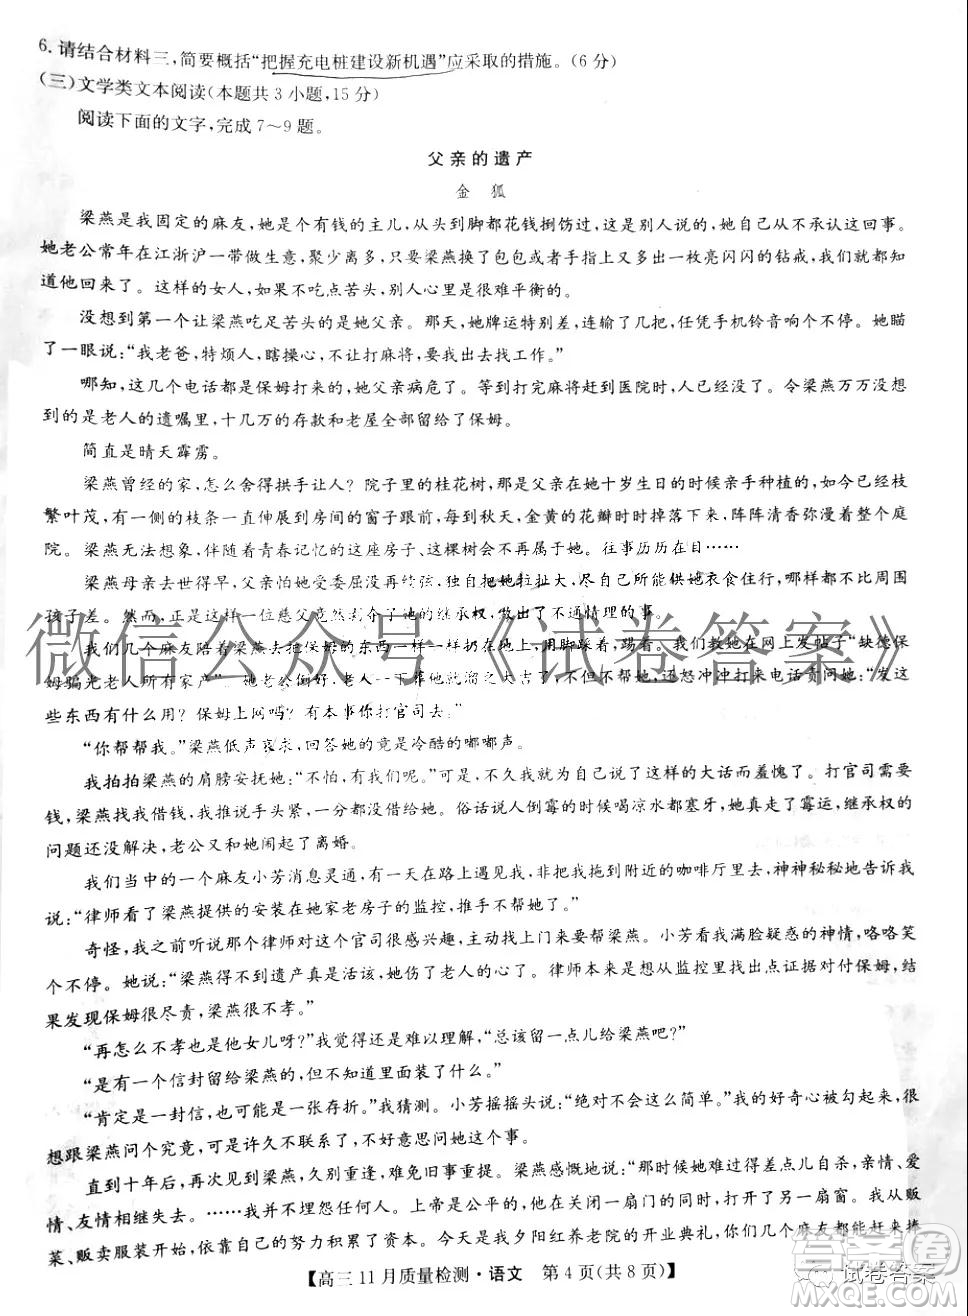 6. 请结合材料三,简要概括“把握充电桩建设新机遇”应采取的措施。(6 分)
(三)文学类文本阅读(本题共 3 小题,15 分)
阅读下面的文字,完成 7~9 题。
父亲的遗产
金 狐
梁燕是我固定的麻友,她是个有钱的主儿,从头到脚都花钱捯饬过,这是别人说的,她自己从不承认这回事。
她老公常年在江浙沪一带做生意,聚少离多,只要梁燕换了包包或者手指上多出一枚亮闪闪的钻戒,那就是老公回来
过,陪他玩了几天。这样的女人,如果不吃点苦头,别人心里是很难平衡的。
没想到第一个让梁燕吃足苦头的是她父亲。那天,她牌运特别差,连输了几把,任凭手机铃音响个不停。她瞄
了一眼说:“我老爸,特烦人,瞎操心,不让打麻将,要我出去找工作。”
哪知,这几个电话都是保姆打来的,她父亲病危了。等到打完麻将赶到医院时,人已经没了。令梁燕万万没想
到的是老人的遗嘱里,十几万的存款和老屋全部留给了保姆。
简直是晴天霹雳。
梁燕曾经的家,怎么舍得拱手让人?院子里的桂花树,是那年父亲在她十岁生日的时候亲手种植的,如今已经枝
繁叶茂,有一侧的枝条一直伸展到房间的窗子跟前,每到秋天,金黄的花瓣时时掉落下来,阵阵清香弥漫着整个庭
院。梁燕无法想象,伴随着青春记忆的这座房子、这棵树从此不再属于她。往事历历在目……
梁燕母亲去世得早,父亲怕她受委屈没有再续弦,独自把她拉扯大,尽自己所能供她衣食无忧,不比周围
孩子差。然而,正是这样的一位慈父竟然剥夺了她的继承权,做出了不通情理的事。
我们几个麻友陪着梁燕去把保姆的东西一样一样扔出去,用脚踩、用火烧。我们教她在网上发帖子“缺德保
姆骗光老人所有家产”。她老公倒好,老人一下葬他就溜之大吉了,不但不回来,还怒气冲冲打来电话责问她:“发这
些东西有什么用?保姆上网吗?有本事你打官司去。”
“你帮帮我。”梁燕低声哀求,回答她的竟是冷酷的嘟嘟声。
我拍拍梁燕的肩膀安抚她:“不怕,有我们呢。”可是,不久我就为自己说了这样的大话而羞愧了。打官司需要
钱,梁燕找我借钱,我推说手头紧,一分都没借给她。俗话说人倒霉的时候喝凉水都塞牙,她真是走了霉运,继承权的
问题还没解决,老公又和她闹起了离婚。
我们当中的一个麻友小芳消息灵通,有一天在路上遇见我,非把我拖到附近的咖啡厅里去,神神秘秘地告诉我
说:“律师看了梁燕提供的安装在她家老房子的监控,推手不帮她了。”
奇怪,我之前听说那个律师对这个官司很感兴趣,主动找上门来要帮梁燕。小芳看我满脸疑惑的神情,咯咯笑
个不停。她说:“梁燕得不到遗产真是活该,她伤了老人的心了。律师本来是想从监控里找出点证据对付保姆,结
果发现保姆很尽责,梁燕很不孝。”
“再怎么不孝也是他女儿呀。”我还是难以理解,“总该留一点儿给梁燕吧?”
“是有一个信封留给梁燕,但不知道装了什么。”
“肯定是一封信,也可能是一张存折。”我猜测。小芳摇摇头说:“绝对不会这么简单。”我的好奇心立马爆棚,很
想跟梁燕问个究竟,可是许久不联系了,不好意思问她这个事。
直到十年后,再次遇到梁燕,久别重逢,难免旧事重提。梁燕感慨地说:“那时候她难过得差点儿自杀,亲情、爱
情、友情相继失去。……但是,上帝是公平的,他在关闭一扇门的同时,又打开了另一扇窗。我从贩
菜、贩卖服装开始,依靠自己的努力积累了资本。今天是我夕阳红养老院的开业典礼,你们几个麻友都能赶来捧
【高三 11 月质量检测·语文 第 4 页(共 8 页)】
微信公众号《试卷答案》
试卷答案